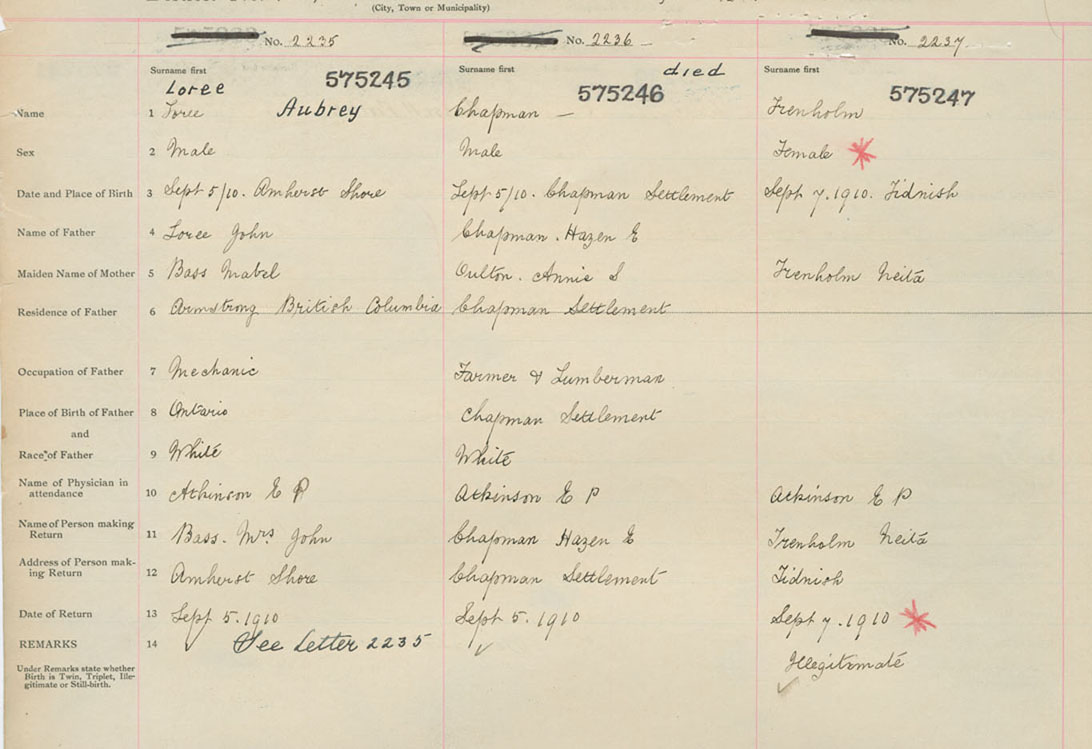 (City, Town or Municipality)
No. 2235 No. 2236 No. 2237
Surname first Surname first died Surname first
Loree 575245 575246 575247
Name 1 Loree Aubrey Chapman — Trenholm
Sex 2 Male Male Female
Date and Place of Birth 3 Sept 5/10. Amherst Shore Sept 5/10. Chapman Settlement Sept 7. 1910. Tidnish
Name of Father 4 Loree John Chapman. Hazen E
Maiden Name of Mother 5 Bass Mabel Oulton. Annie S Trenholm Neita
Residence of Father 6 Armstrong British Columbia Chapman Settlement
Occupation of Father 7 Mechanic Farmer & Lumberman
Place of Birth of Father 8 Ontario Chapman Settlement
and
Race of Father 9 White White
Name of Physician in
attendance 10 Atkinson E P Atkinson E P Atkinson E P
Name of Person making
Return 11 Bass. Mrs John Chapman Hazen E Trenholm Neita
Address of Person mak-
ing Return 12 Amherst Shore Chapman Settlement Tidnish
Date of Return 13 Sept 5. 1910 Sept 5. 1910 Sept 7. 1910
REMARKS 14 See Letter 2235
Under Remarks state whether
Birth is Twin, Triplet, Ille-
gitimate or Still-birth.
Illegitimate